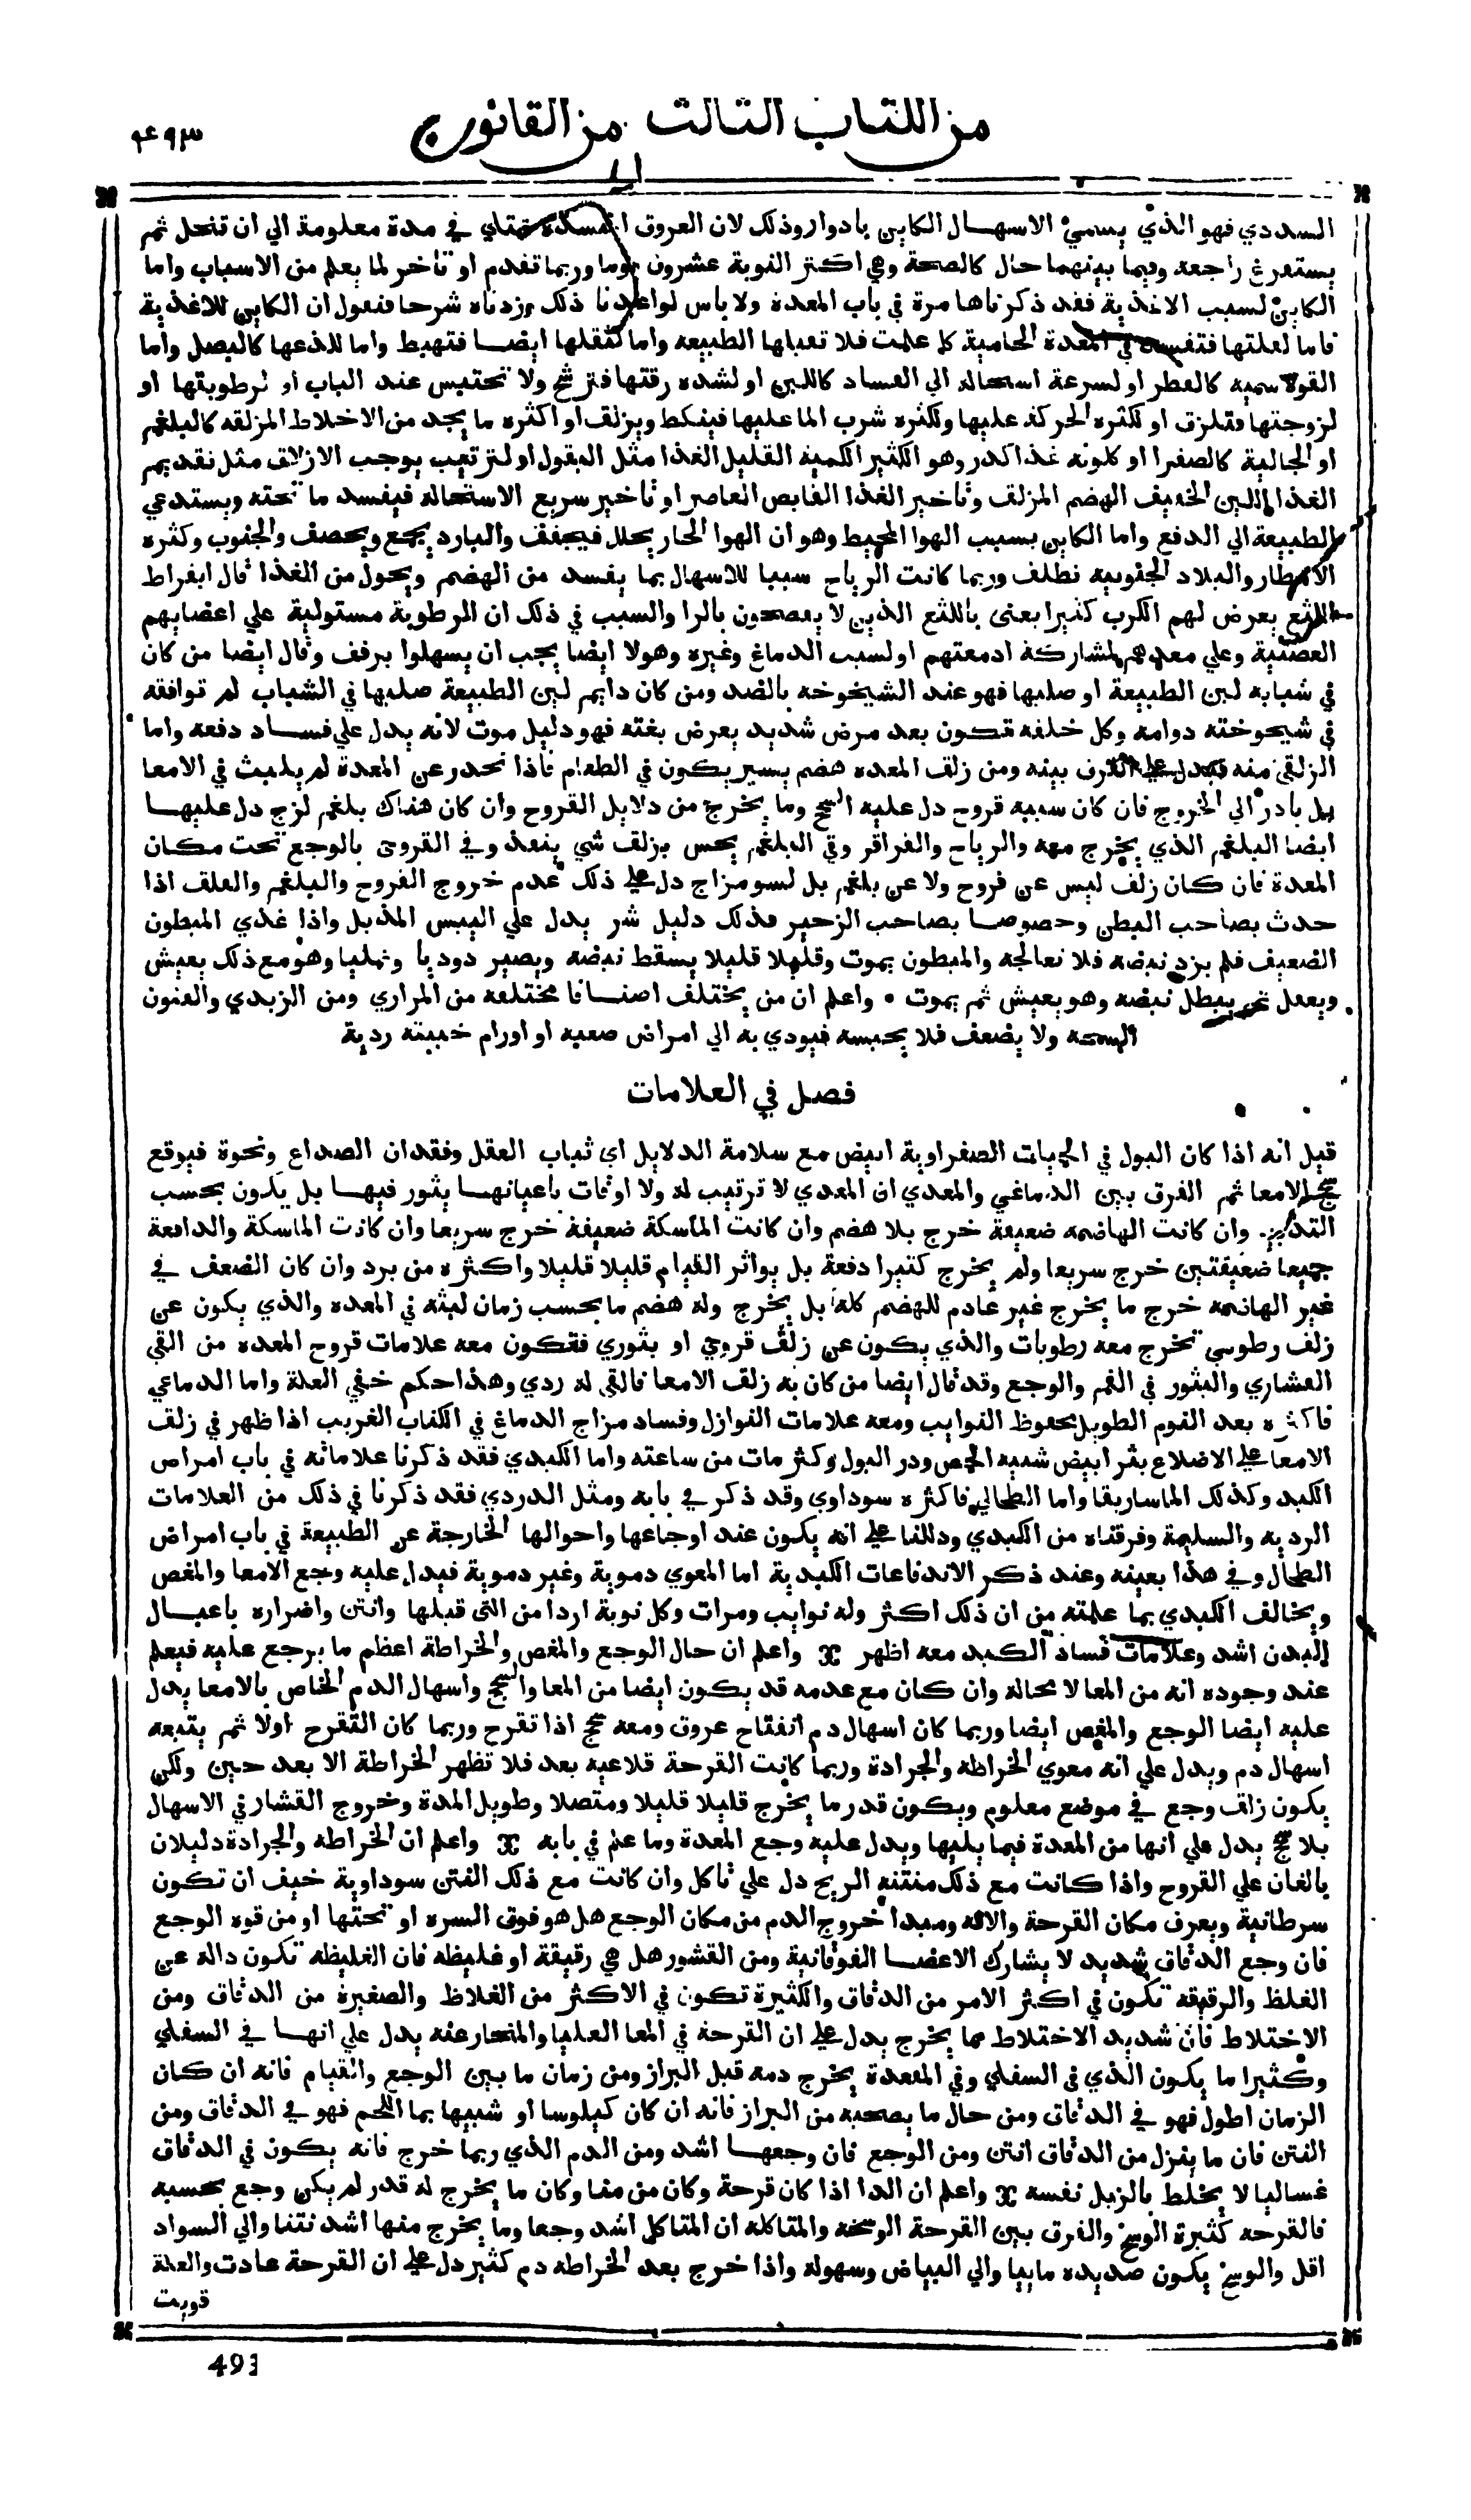 من الكتاب الثالث من القانون
٤٩٣
السددي فهو الذي يسمي الاسهال الكاين بادوار وذلك لان العروق المنسدة تمتلي في مدة معلومة الي ان تنحل ثم
يستفرغ راجعه وفيما بينهما حال كالصحة وهي اكثر النوبة عشرون يوما وربما تقدم او تاخر لما يعلم من الاسباب واما
الكاين لسبب الاغذية فقد ذكرناها مرة في باب المعدة ولا باس لو اعدنا ذلك وزدناه شرحا فنعول ان الكاين للاغذية
فاما لعلتها فتفسد في المعدة الحامية كا علمت فلا تعباها الطبيعه واما لثقلها ايضا فتهبط واما للذعها كالبصل واما
لقوة سميه كالفطر او لسرعة استحاله الي الفساد كاللبن او لشده رقتها فترشح ولا تحتبس عند الباب او لرطوبتها او
لزوجتها فتلزق او لكثره الحركة عليها ولكثره شرب الما عليها فينكط ويزلق او اكثره ما يجد من الاخلاط المزلقه كالبلغم
او الجالية كالصفرا او كلونه غذا كدر وهو الكثير الكميه القليل الغذا مثل البقول او لترتيب يوجب الازلاق مثل تقديم
الغذا اللين الخفيف الهضم المزلق وتاخير الغذا القابض العاصر او تاخير سريع الاستحاله فيفسد ما تحته ويستدعي
الطبيعة الي الدفع واما الكاين بسبب الهوا المحيط وهو ان الهوا الحار يحلل فيجفف والبارد يجمع ويحصف والجنوب وكثره
الامطار والبلاد الجنوبيه تطلف وربما كانت الرياح سببا للاسهال بما يفسد من الهضم ويحول من الغذا قال ابقراط
اللثغ يعرض لهم الكرب كثيرا يعني باللثغ الذين لا يفصحون بالرا والسبب في ذلك ان الرطوبة مستولية علي اعضايهم
العصبية وعلي معدهم لمشاركة ادمغتهم او لسبب الدماغ وغيره وهولا ايضا يجب ان يسهلوا برفق وقال ايضا من كان
في شبابه لين الطبيعة او صلبها فهو عند الشيخوخه بالضد ومن كان دايم لين الطبيعة صلبها في الشباب لم توافقه
في شيخوخته دوامه وكل خلفه تكون بعد مرض شديد يعرض بغته فهو دليل موت لانه يدل علي فساد دفعه واما
الزلقي منه فيدل علي الفرق بينه ومن زلق المعده هضم يسير يكون في الطعام فاذا انحدر عن المعدة لم يلبث في الامعا
بل بادر الي الخروج فان كان سببه قروح دل عليه السحج وما يخرج من دلايل القروح وان كان هناك بلغم لزج دل عليها
ايضا البلغم الذي يخرج معه والرياح والقراقر وفي البلغم يحس بزلق شي ينفذ وفي القروحي بالوجع تحت مكان
المعدة فان كان زلق ليس عن قروح ولا عن بلغم بل لسو مزاج دل علي ذلك عدم خروج القروح والبلغم والعلف اذا
حدث بصاحب البطن وخصوصا بصاحب الزحير فذلك دليل شر يدل علي اليبس المذبل واذا غذي المبطون
الضعيف فلم يزد نبضه فلا نعالجه والمبطون يموت وقليلا قليلا يسقط نبضه ويصير دوديا ونمليا وهو مع ذلك يعيش
ويعقل ثم يبطل نبضه وهو يعيش ثم يموت ٭ واعلم ان من يختلف اصنافا مختلفه من المراري ومن الزبدي والفنون
السمجه ولا يضعف فلا يحبسه فيودي به الي امراض صعبه او اورام خبيثه ردية
فصل في العلامات
قيل انه اذا كان البول في الحميات الصفراوية ابيض مع سلامة الدلايل اي ثبات العقل وفقدان الصداع ونحوة فيوقع
سحج الامعا ثم الفرق بين الدماغي والمعدي ان المعدي لا ترتيب له ولا اوقات باعيانها يثور فيها بل يكون بحسب
التدبير. وان كانت الهاضمه ضعيفة خرج بلا هضم وان كانت الماسكة ضعيفة خرج سريعا وان كانت الماسكة والدافعة
جميعا ضعيفتين خرج سريعا ولم يخرج كثيرا دفعة بل يواثر القيام قليلا قليلا واكثره من برد وان كان الضعف في
غير الهاضمه خرج ما يخرج غير عادم للهضم كله بل يخرج وله هضم ما بحسب زمان لبثه في المعده والذي يكون عن
زلف رطوبي تخرج معه رطوبات والذي يكون عن زلق قروحي او بثوري فتكون معه علامات قروح المعده من القي
القشاري والبثور في الفم والوجع وقد قال ايضا من كان به زلق الامعا فالقي له ردي وهذا حكم خفي العلة واما الدماغي
فاكثره بعد النوم الطويل بحفوظ النوايب ومعه علامات النوازل وفساد مزاج الدماغ في الكتاب الغريب اذا ظهر في زلف
الامعا علي الاضلاع بثر ابيض شبيه الحمص ودر البول وكثر مات من ساعته واما الكبدي فقد ذكرنا علاماته في باب امراض
الكبد وكذلك الماساريقا واما الطحالي فاكثره سوداوي وقد ذكر في بابه ومثل الدردي فقد ذكرنا في ذلك من العلامات
الرديه والسليمة وفرقناه من الكبدي ودللنا علي انه يكون عند اوجاعها واحوالها الخارجة عن الطبيعة في باب امراض
الطحال وفي هذا بعينه وعند ذكر الاندفاعات الكبدية اما المعوي دموية وغير دموية فيدل عليه وجع الامعا والمغص
ويخالف الكبدي بما علمته من ان ذلك اكثر وله نوايب ومرات وكل نوبة اردا من التي قبلها وانتن واضراره باعبال
البدن اشد وعلامات فساد الكبد معه اظهر ※ واعلم ان حال الوجع والمغص والخراطة اعظم ما يرجع عليه فيعلم
عند وجوده انه من المعا لا محالة وان كان مع عدمه قد يكون ايضا من المعا والسحج واسهال الدم الخاص بالامعا يدل
عليه ايضا الوجع والمغص ايضا وربما كان اسهال دم انفتاح عروق ومعه سحج اذا تقرح وربما كان التقرح اولا ثم يتبعه
اسهال دم ويدل علي انه معوي الخراطه والجرادة وربما كانت القرحة قلاعيه بعد فلا تظهر الخراطة الا بعد حين ولكن
يكون زلق وجع في موضع معلوم ويكون قدر ما يخرج قليلا قليلا ومتصلا وطويل المدة وخروج القشار في الاسهال
بلا سحج يدل علي انها من المعدة فيما يليها ويدل عليه وجع المعدة وما علم في بابه ※ واعلم ان الخراطه والجرادة دليلان
بالغان علي القروح واذا كانت مع ذلك منتنه الريح دل علي تاكل وان كانت مع ذلك الفتن سوداوية خيف ان تكون
سرطانية ويعرف مكان القرحة والافه ومبدا خروج الدم من مكان الوجع هل هو فوق السره او تحتها او من قوه الوجع
فان وجع الدقاق شديد لا يشارك الاعضا الفوقانية ومن القشور هل هي رقيقة او غليظه فان الغليظه تكون داله عن
الغلظ والرقيقه تكون في اكثر الامر من الدقاق والكثيرة تكون في الاكثر من الغلاظ والصغيرة من الدقاق ومن
الاختلاط فان شديد الاختلاط مما يخرج يدل علي ان القرحة في المعا العليا والمنحاز عنه يدل علي انها في السفلي
وكثيرا ما يكون الذي في السفلي وفي المقعدة يخرج دمه قبل البراز ومن زمان ما بين الوجع والقيام فانه ان كان
الزمان اطول فهو في الدقاق ومن حال ما يصحبه من البراز فانه ان كان كيلوسا او شبيها بما اللحم فهو في الدقاق ومن
النتن فان ما ينزل من الدقاق انتن ومن الوجع فان وجعها اشد ومن الدم الذي ربما خرج فانه يكون في الدقاق
غساليا لا يخلط بالزبل نفسه ※ واعلم ان الدا اذا كان قرحة وكان من معا وكان ما يخرج له قدر لم يكن وجع بحسبه
فالقرحه كثيرة الوسخ والفرق بين القرحة الوسخه والمتاكله ان المتاكل اشد وجعا وما يخرج منها اشد نتنا والي السواد
اقل والوسخ يكون صديده ماييا والي البياض وسهولة واذا خرج بعد الخراطه دم كثير دل علي ان القرحة عادت والعلة
قويت
493